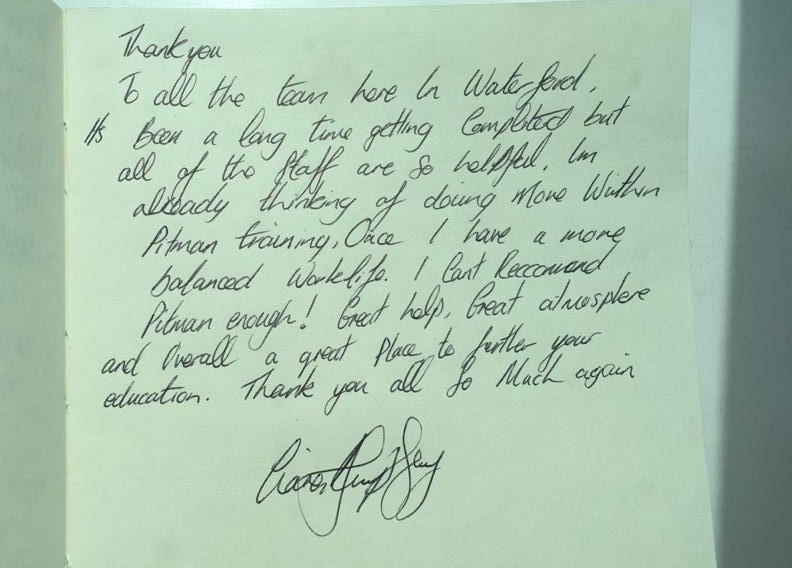 Thank you
To all the team here In Waterford,
Its Been a long time getting Completed but
all of the Staff are So helpful, Im
already thinking of doing More Within
Pitman training, Once I have a more
balanced Worklife. I Cant Reccomend
Pitman enough! Great help, Great atmosphere
and Overall a great Place to further your
education. Thank you all So Much again